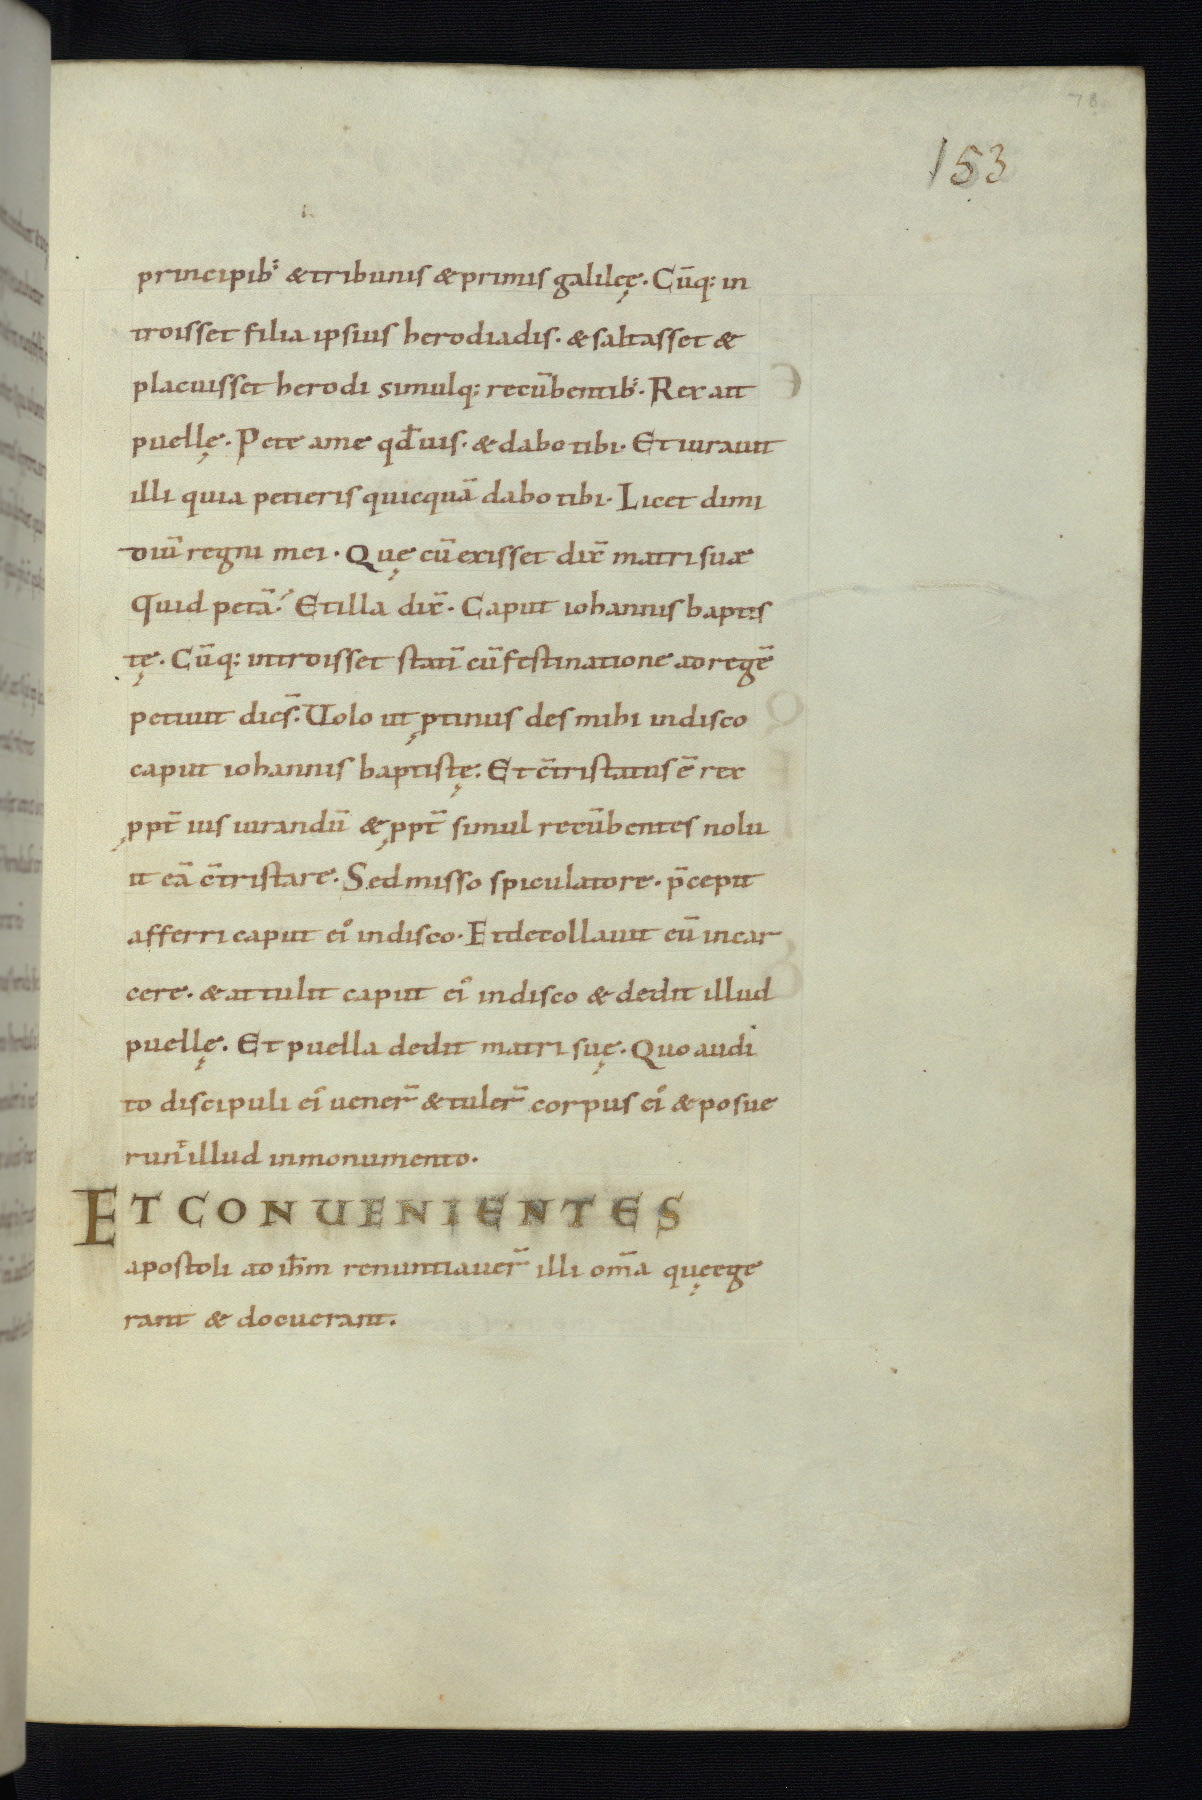 78
153
principib; & tribunis & primis galileę. Cūq; in
troisset filia ipsius herodiadis. & saltasset &
placuisset herodi simulq; recūbentib;. Rex ait
puellę. Pete a me qđ uis. & dabo tibi. Et iurauit
illi quia petieris quicquā dabo tibi. Licet dimi
diū regni mei. Quę cū exisset dix̄ matri suæ
Quid petā? Et illa dix̄. Caput iohannis baptis
tę. Cūq; introisset statī cū festinatione ad regē
petiuit dicēs. Uolo ut ꝓtinus des mihi in disco
caput iohannis baptistę. Et c̄tristatus ē rex
ꝓpt̄ ius iurandū & ꝓpt̄ simul recūbentes nolu
it eā c̄tristare. Sed misso spiculatore. p̄cepit
afferri caput ei᾽ in disco. Et decollauit eū in car
cere. & attulit caput ei᾽ in disco & dedit illud
puellę. Et puella dedit matri suę. Quo audi
to discipuli ei᾽ uener̄ & tuler̄ corpus ei᾽ & posue
runt illud in monumento.
ET CONUENIENTES
apostoli ad ih̄m renuntiauer̄ illi om̄a quę ege
rant & docuerant.